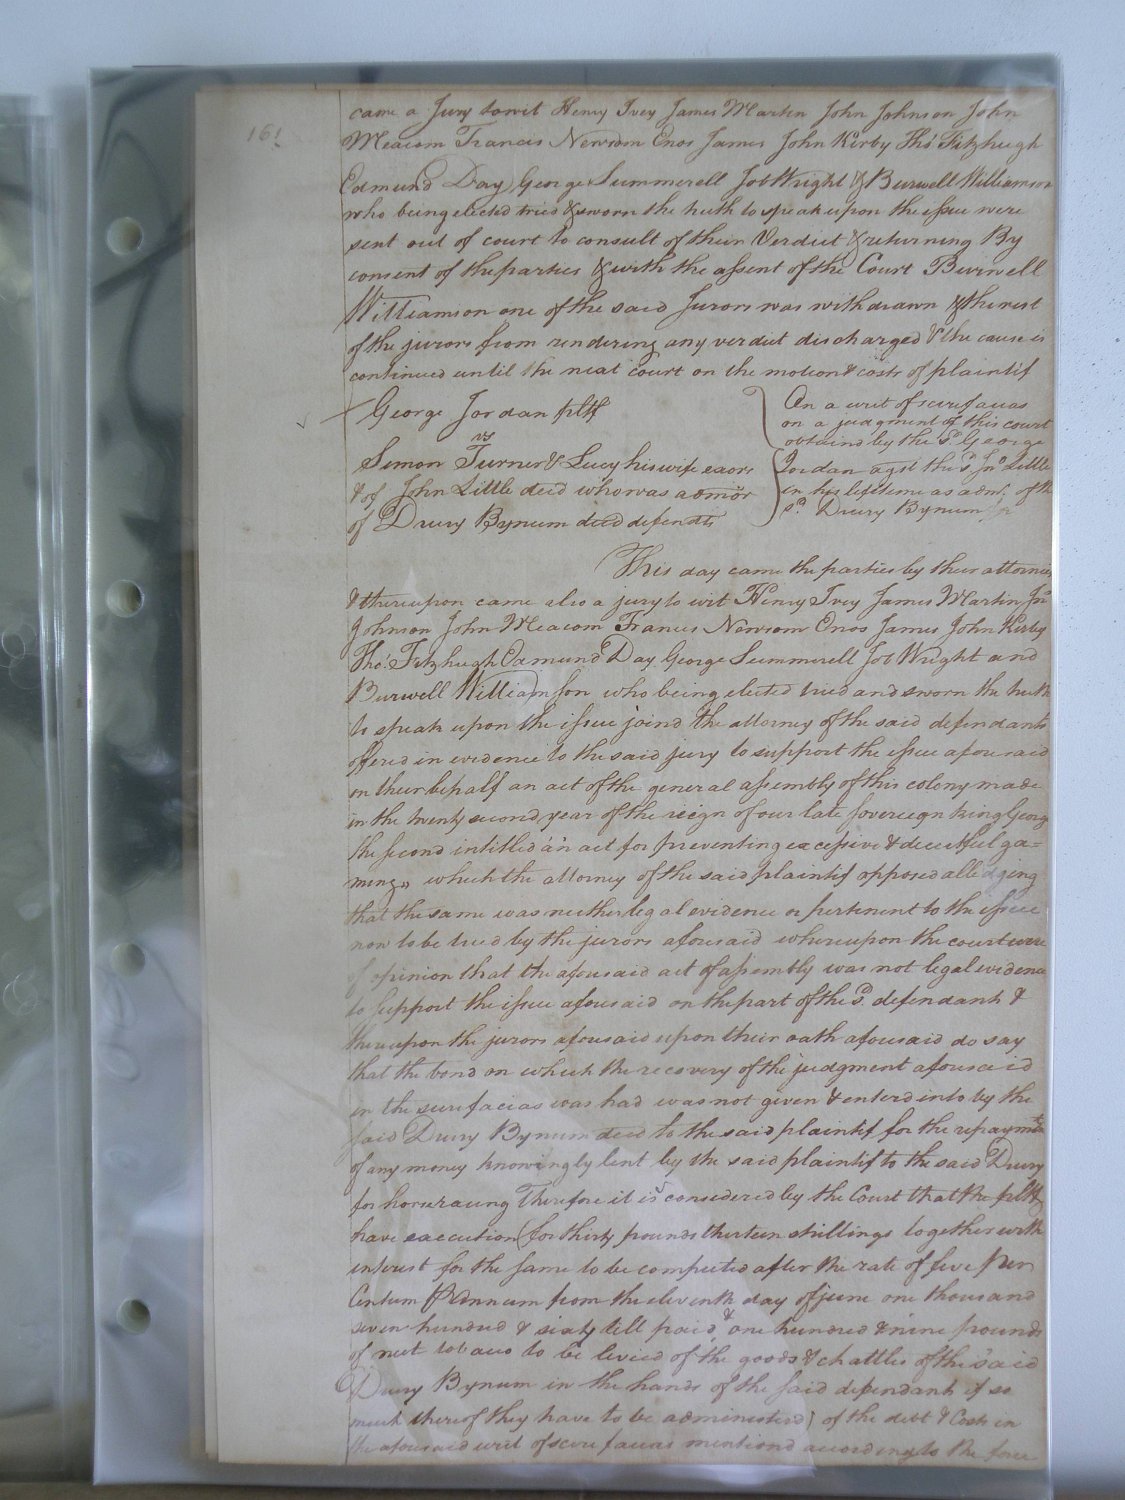 161
came a Jury towit Henry Ivey James Martin John Johnson John
Meacom Francis Newsom Enos James John Kirby Tho.s Fitzhugh
Edmund Day George Summerell Job Wright & Burwell Williamson
who being elected tried & sworn the truth to speak upon the issue were
sent out of court to consult of their Verdict & returning By
consent of the parties & with the assent of the Court Burwell
Williamson one of the said Jurors was withdrawn & the rest
of the jurors from rendering any verdict discharged & the cause is
continued until the next court on the motion & costs of plaintif
George Jordan pltf
vs
Simon Turner & Lucy his wife exors
& of John Little decd who was admor
of Drury Bynum decd defendts
On a writ of scire facias
on a judgment of this court
obtaind by the sd George
Jordan agst the sd Jno Little
in his lifetime as admr. of th
sd Drury Bynum
This day came the parties by their attornies
& thereupon came also a jury to wit Henry Ivey James Martin Jno
Johnson John Meacom Francis Newsom Enos James John Kirby
Tho.s Fitzhugh Edmund Day George Summerell Job Wright and
Burwell Williamson who being elected tried and sworn the truth
to speak upon the issue joind the attorney of the said defendants
offered in evidence to the said jury to support the issue aforesaid
on their behalf an act of the general assembly of this colony made
in the twenty second year of the reign of our late sovereign king George
the second intitled an act for preventing excessive & deceitful ga=
ming, which the attorney of the said plaintif opposed alledging
that the same was neither legal evidence or pertinent to the issue
now to be tried by the jurors aforesaid whereupon the court were
of opinion that the aforesaid act of assembly was not legal evidence
to support the issue aforesaid on the part of the sd. defendants &
thereupon the jurors aforesaid upon their oath aforesaid do say
that the bond on which the recovery of the judgment aforesaid
in the scire facias was had was not given & enterd into by the
said Drury Bynum decd to the said plaintif for the repaymt
of any money knowingly lent by the said plaintif to the said Drury
for horseracing Therefore it is considered by the Court that the pltf
have execution (for thirty pounds thirteen shillings together with
interest for the same to be computed after the rate of five per
Centum P Annum from the eleventh day of june one thousand
seven hundred & sixty till paid & one hundred & nine pounds
of neet tobacco to be levied of the goods & chattles of the said
Drury Bynum in the hands of the said defendants if so
much thereof they have to be administerd) of the debt & Costs in
the aforesaid writ of scire facias mentiond according to the force